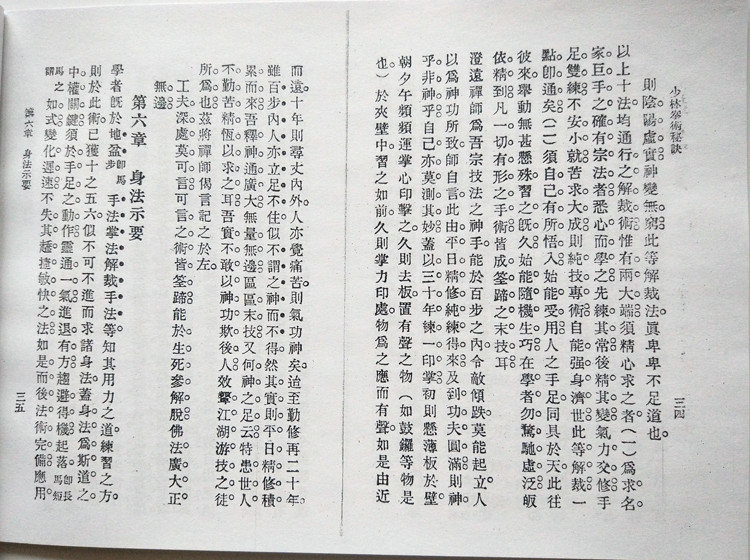 少林拳術秘訣
三四
則陰陽虛實神變無窮此等解裁法眞卑卑不足道也
以上十法均通行之解裁術惟有兩大端須精心求之者(一)爲求名
家巨手之確有宗法者悉心而學之先練其常後精其變氣力交修手
足雙練不安小就苦求大成則純技專術自能强身濟世此等解裁一
點卽通矣(二)須自己有所悟入始能受用人之手足同具於天此往
彼來舉動無甚懸殊習之旣久始能隨機生巧在學者勿騖馳虛泛皈
依精到凡一切有形之手術皆成筌蹄之末技耳
澄遠禪師爲吾宗技法之神手能於百步之內令敵傾跌莫能起立人
以爲神功所致師自言此由平日精修純練得來及到功夫圓滿則神
乎非神乎自己亦莫測其妙蓋以三十年練一印掌初則懸薄板於壁
朝夕午頻頻運掌心印擊之久則去板置有聲之物(如鼓鑼等物是
也)於夾壁中習之如前久則掌力印處物爲之應而有聲如是由近
而遠十年則尋丈內外人亦覺痛苦則氣功神矣迨至勤修再二十年
雖百步內人亦立足不住似不謂之神而不得然其實則平日精修積
累而來吾釋神通廣大無量無邊區區末技又何神之足云特患世人
不勤苦精恆以求之耳吾實不敢以神功欺後人效顰江湖游技之徒
所爲也茲將禪師偈言記之於左
工夫深處莫可言可言之術皆筌蹄能於生死參解脫佛法廣大正
無邊
第六章 身法示要
學者旣於地盆卽馬步手法掌法解裁手法等知其用力之道練習之方
則於此術已獲十之五六似不可不進而求諸身法蓋身法爲斯道之
中權關鍵須於手足之動作靈通一氣進退有方趨避得機起落卽長馬短
馬之關如式變化遲速不失其趫捷敏快之法如是而後法術完備應用
第六章 身法示要
三五